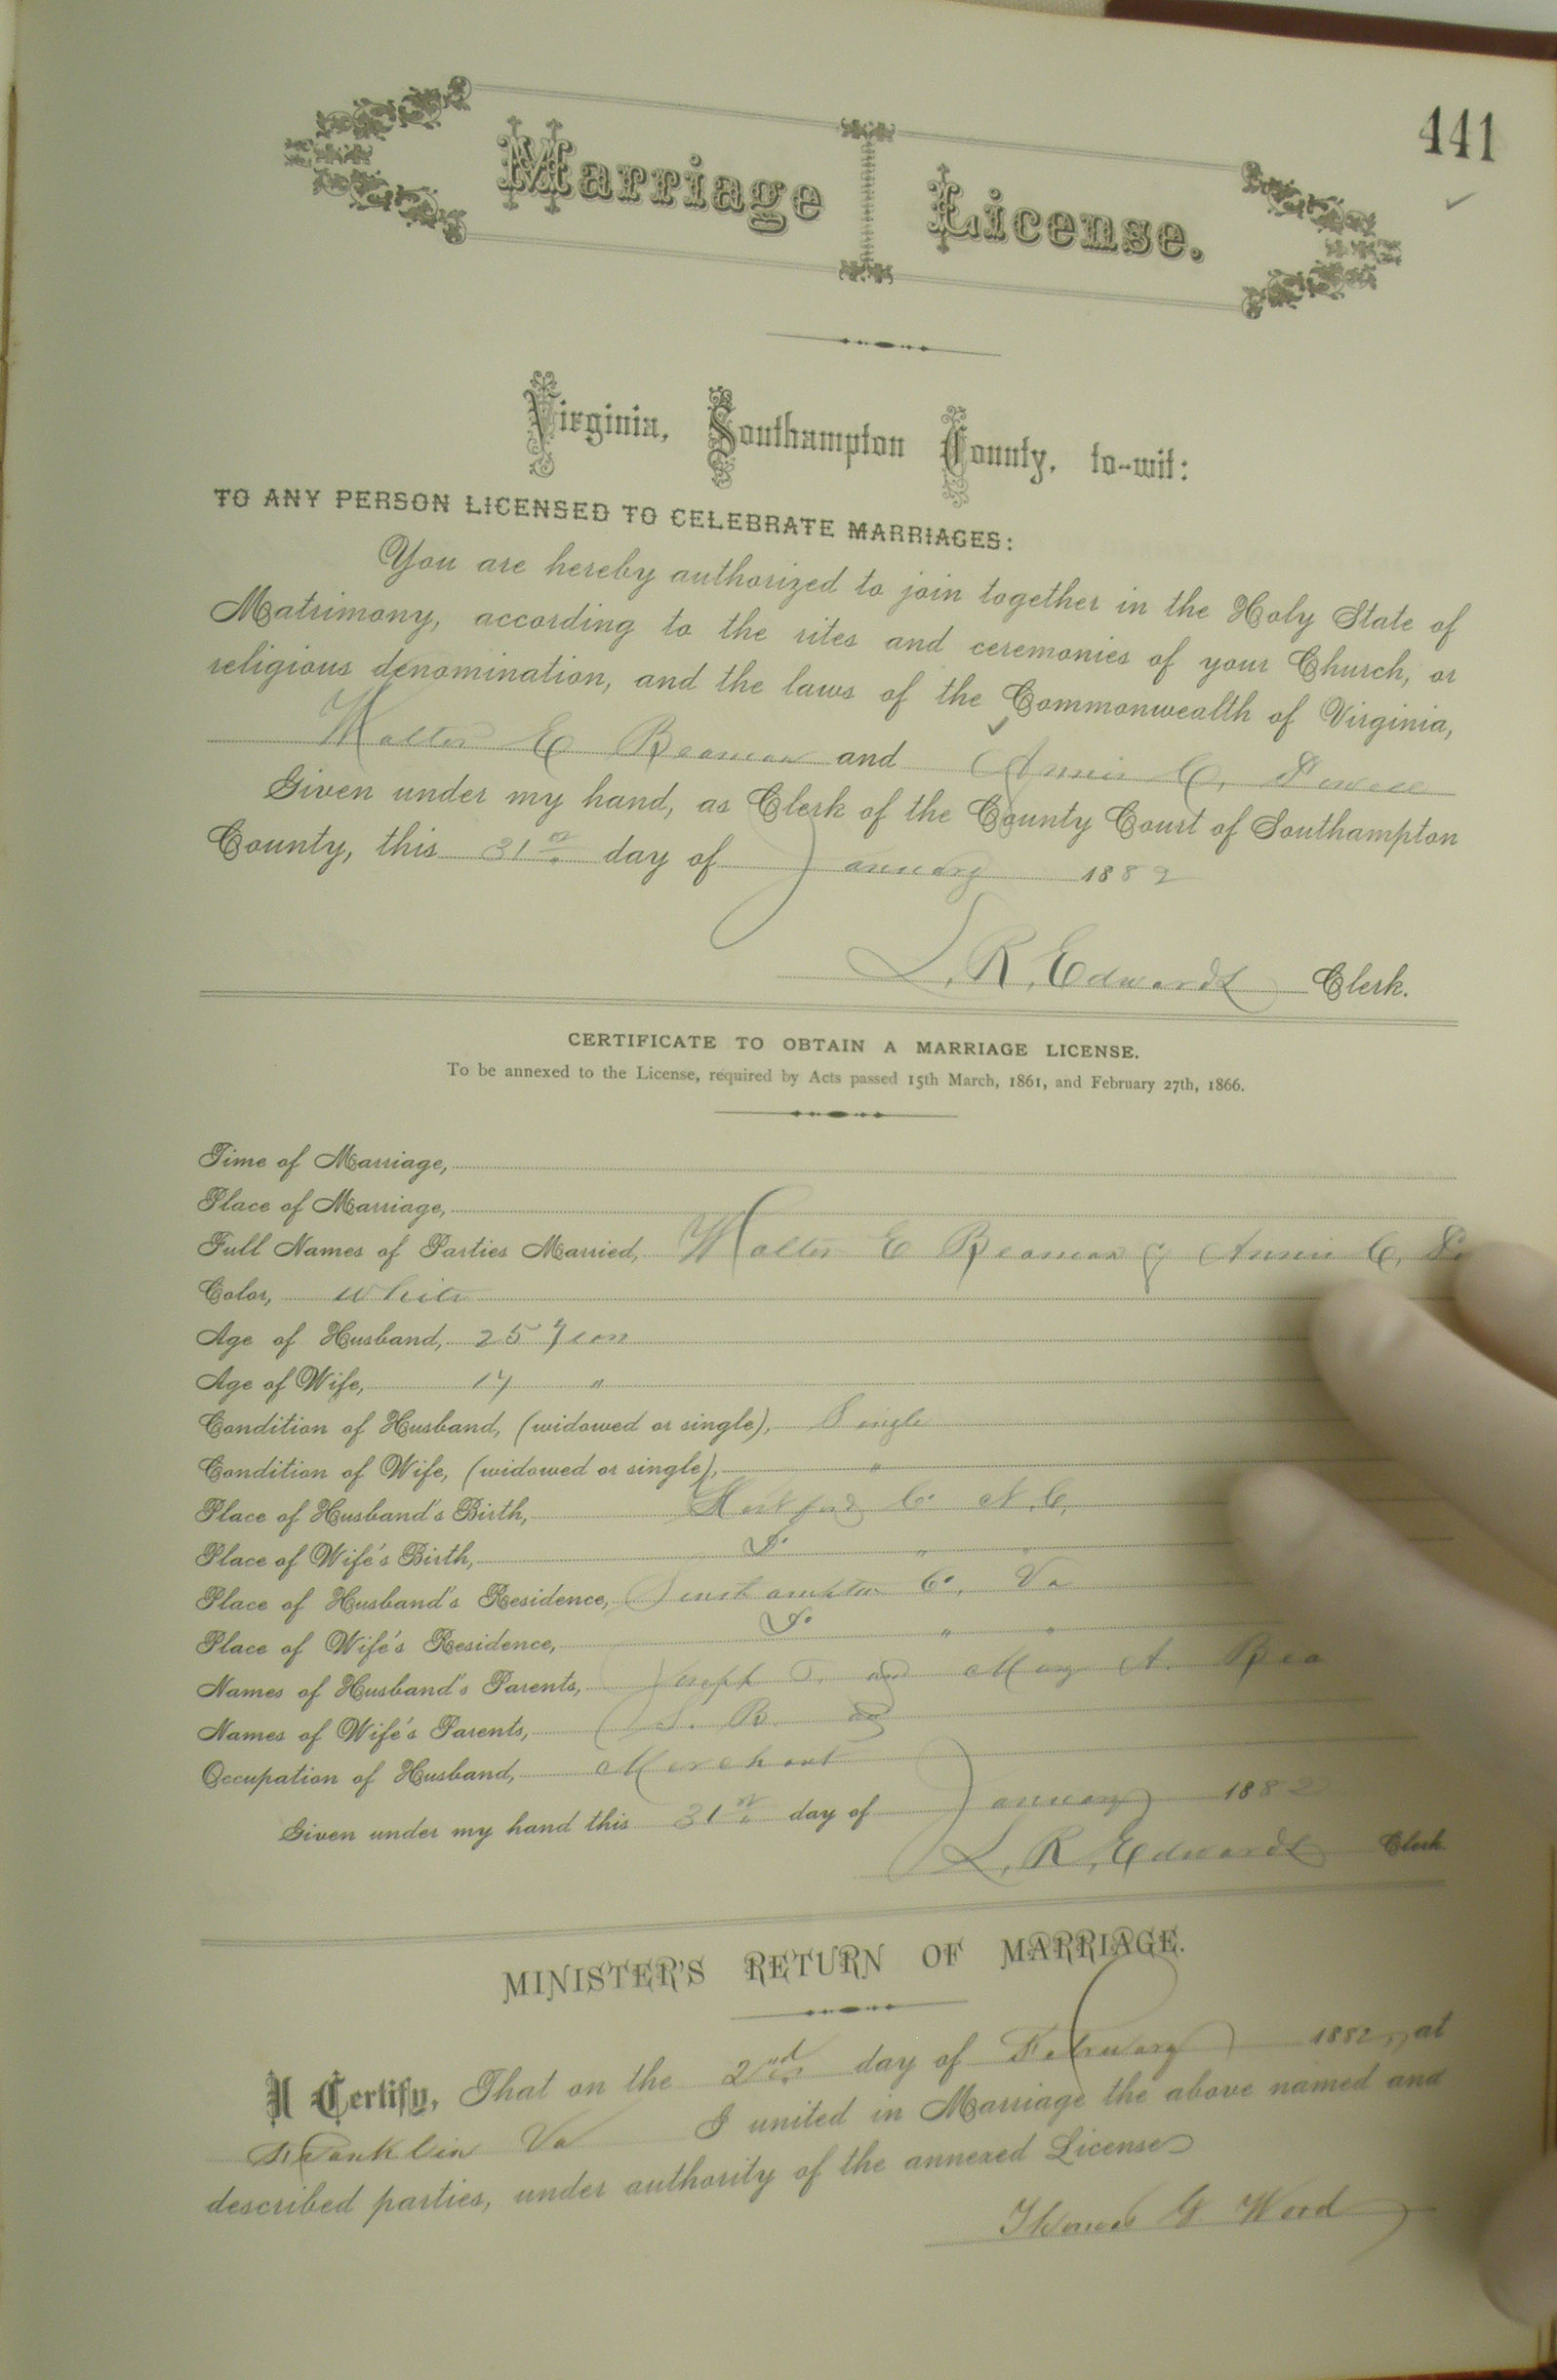 441
Marriage License.
Virginia, Southampton County, to-wit:
TO ANY PERSON LICENSED TO CELEBRATE MARRIAGES:
You are hereby authorized to join together in the Holy State of
Matrimony, according to the rites and ceremonies of your Church, or
religious denomination, and the laws of the Commonwealth of Virginia,
Walter E Beaman and Annie C.
Given under my hand, as Clerk of the County Court of Southampton
County, this 31st day of January 1882
L. R. Edwards Clerk.
CERTIFICATE TO OBTAIN A MARRIAGE LICENSE.
To be annexed to the License, required by Acts passed 15th March, 1861, and February 27th, 1866.
Time of Marriage,
Place of Marriage,
Full Names of Parties Married, Walter E Beaman & Annie C.
Color, White
Age of Husband, 25 years
Age of Wife, "
Condition of Husband, (widowed or single), Single
Condition of Wife, (widowed or single), "
Place of Husband's Birth, Hertford Co N.C.
Place of Wife's Birth, Do " "
Place of Husband's Residence, Southampton Co. Va
Place of Wife's Residence, Do " "
Names of Husband's Parents, Joseph T. and Mary A. Bea
Names of Wife's Parents, B. and
Occupation of Husband, Merchant
Given under my hand this 31st day of January 1882
L. R. Edwards Clerk
MINISTER'S RETURN OF MARRIAGE.
I Certify, That on the 2nd day of February 1882, at
Franklin Va I united in Marriage the above named and
described parties, under authority of the annexed License
Thomas G Ward